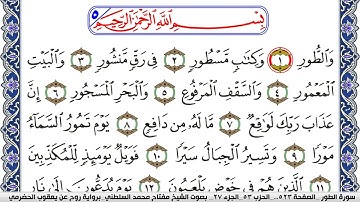 بِسْمِ اللَّهِ الرَّحْمَٰنِ الرَّحِيمِ
وَالطُّورِ ١ وَكِتَابٍ مَسْطُورٍ ٢ فِي رَقٍّ مَنْشُورٍ ٣ وَالْبَيْتِ
الْمَعْمُورِ ٤ وَالسَّقْفِ الْمَرْفُوعِ ٥ وَالْبَحْرِ الْمَسْجُورِ ٦ إِنَّ
عَذَابَ رَبِّكَ لَوَاقِعٌ ٧ مَا لَهُ مِنْ دَافِعٍ ٨ يَوْمَ تَمُورُ السَّمَاءُ
مَوْرًا ٩ وَتَسِيرُ الْجِبَالُ سَيْرًا ١٠ فَوَيْلٌ يَوْمَئِذٍ لِلْمُكَذِّبِينَ
١١ الَّذِينَ هُمْ فِي خَوْضٍ يَلْعَبُونَ ١٢ يَوْمَ يُدَعُّونَ إِلَىٰ نَارِ
سورة الطور - الصفحة ٥٢٣ - الحزب ٥٣ - الجزء ٢٧ - بصوت الشيخ مفتاح محمد السلطني برواية روح عن يعقوب الحضرمي